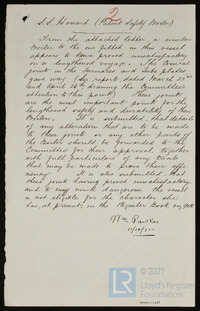 2
S.S. Howard (Patent Safety Boiler)
From the attached letter a similar
Boiler to the one fitted in this vessel
appears to have proved unsatisfactory
on a lengthened voyage. The Conical
joints in the Furnaces and tube plates
gave way (My reports dated March 23rd
and April 26th drawing the Committee's
attention to this point) These joints
are the most important points for the
lengthened safety and durability of these
Boilers, It is submitted, that details
of any alteration that are to be made
to these joints or any other parts of
the Boiler should be forwarded to the
Committee for their approval together
with full particulars of any trials
that may be made to prove their effi-
ciency It is also submitted that
these joints having proved unsatisfactory,
and to say much dangerous the vessel
is not eligible for the character she
has, at present, in the Register Book
Wm Parker
© 2021
Lloyd's Register
Foundation